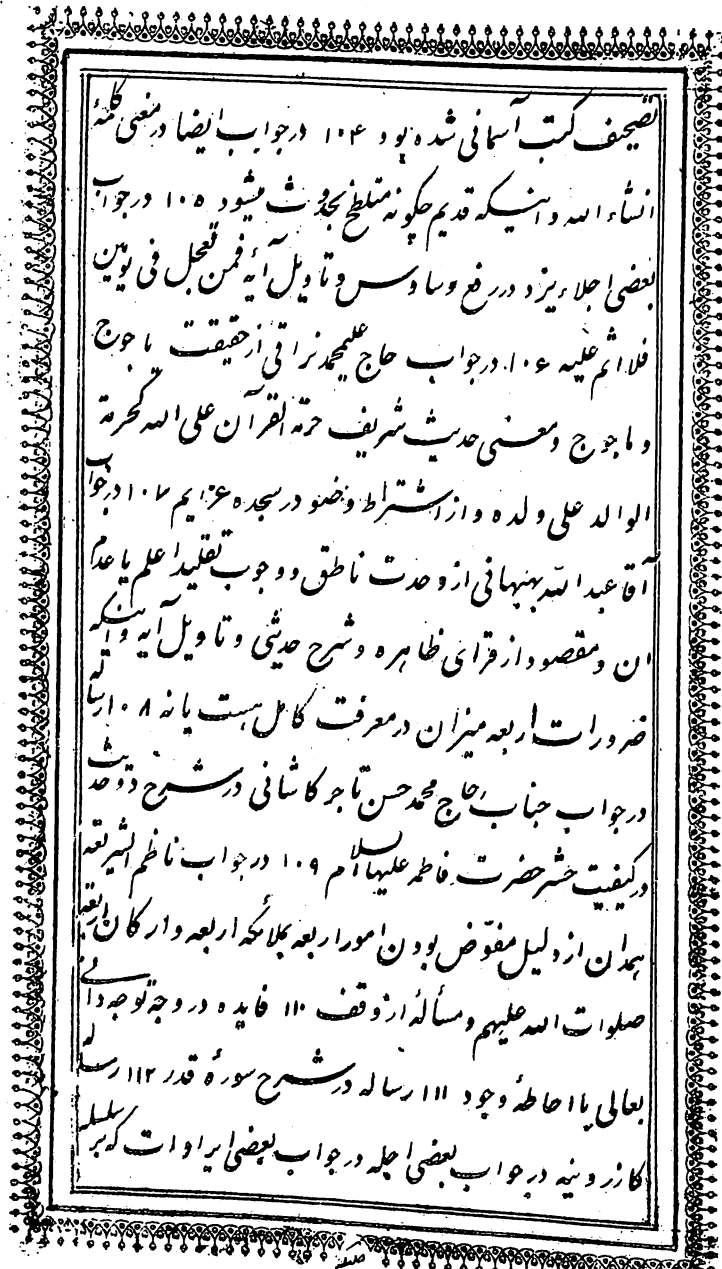 تصحیف کتب آسمانی شده بود ۱۰۴ در جواب ایضا در معنی کلمهٔ
انشاء الله و اینکه قدیم چگونه متلطخ بحدوث میشود ۱۰۵ در جواب
بعضی اجلاء یزد در رفع وساوس و تاویل آیهٔ فمن تعجل فی یومین
فلا اثم علیه ۱۰۶ در جواب حاج علیمحمد نراقی از حقیقت یاجوج
و ماجوج و معنی حدیث شریف حرمة القرآن علی الله کحرمة
الوالد علی ولده و از اشتراط وضو در سجده عزایم ۱۰۷ در جواب
آقا عبدالله بهبهانی از وحدت ناطق و وجوب تقلید اعلم یا عدم
ان و مقصود از قرای ظاهره و شرح حدیثی و تاویل آیه و اینکه
ضرورات اربعه میزان در معرفت کامل هست یا نه ۱۰۸ رساله
در جواب جناب حاج محمد حسن تاجر کاشانی در شرح دو حدیث
در کیفیت حشر حضرت فاطمه علیها السلام ۱۰۹ در جواب ناظم الشریعه
همدان از دلیل مفوّض بودن امور اربعه بملائکه اربعه و ارکان اربعه
صلوات الله علیهم و مسألهٔ از وقف ۱۱۰ فایده در وجه توجه دانی
بعالی با احاطهٔ وجود ۱۱۱ رساله در شرح سورهٔ قدر ۱۱۲ رساله
کازرونیه در جواب بعضی اجله در جواب بعضی ایرادات که بر سلسله